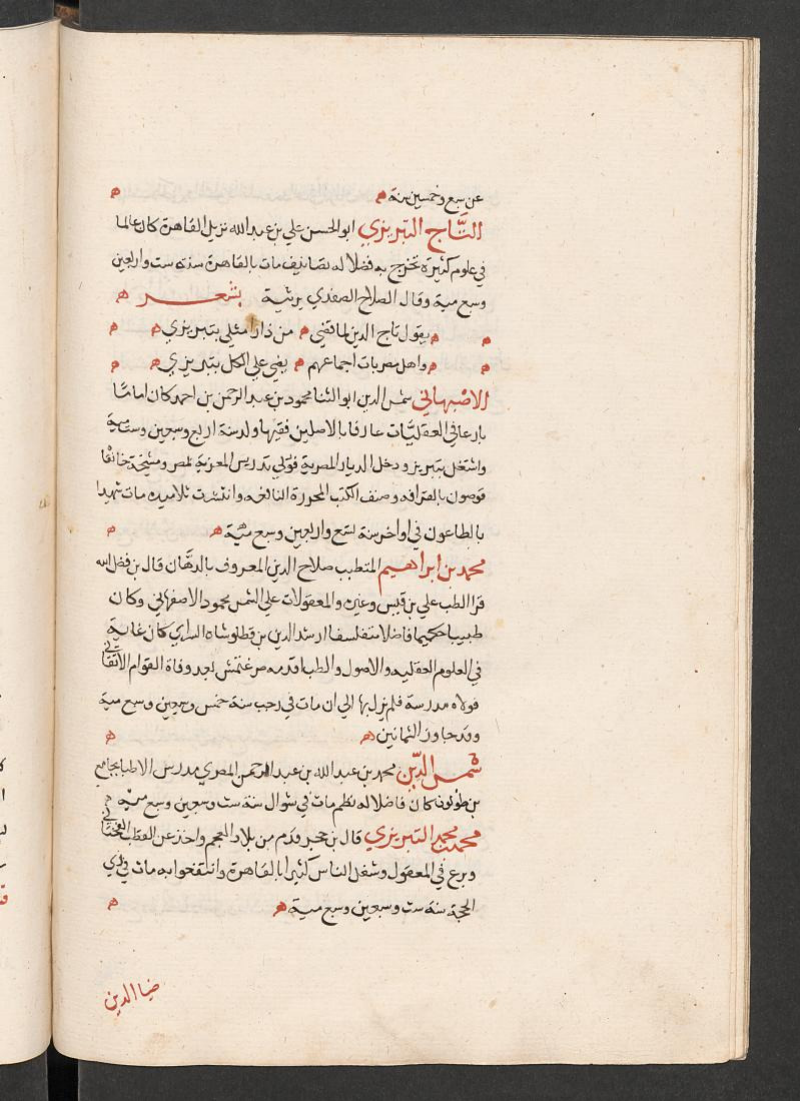 عن سبع وخمسين سنة ه ه
التاج التبريزي ابو الحسن علي بن عبد الله نزيل القاهرة كان عالما
في علوم كثيرة تخرج به فضلا له تصانيف مات بالقاهرة سنة ست واربعين
وسبع مية وقال الصلاح الصفدي يرثيه بشعر ه
ه ه يقول تاج الدين لما قضى ه من ذا رأى مثلي بتبريزي ه ه
ه ه واهل مصر بات اجماعهم ه يقضي على الكل بتبريزي ه ه
الاصبهاني شمس الدين ابو الثنا محمود بن عبد الرحمن بن احمد كان اماما
بارعا في العقليات عارفا بالاصلين فقيها ولد سنة اربع وسبعين وستمية
واشتغل بتبريز ودخل الديار المصرية فولي تدريس المعزية بمصر ومشيخة خانقا
قوصون بالقرافه وصنف الكتب المحررة النافعه وانتشرت تلاميذه مات شهيدا
بالطاعون في اواخر سنة تسع واربعين وسبع مية ه ه
محمد بن ابراهيم المتطبب صلاح الدين المعروف بالدهان قال بن فضل الله
قرا الطب علي بن قيس وغيره والمعقولات علي الشمس محمود الاصفهاني وكان
طبيبا حكيما فاضلا متفلسفا ارشد الدين بن قطلوشاه السراي كان غاية
في العلوم العقليه والاصول والطب اقدمه صرغتمش بعد وفاة القوام الأتقاني
فولاه مدرسة فلم يزل بها الي ان مات في رجب سنة خمس وسبعين وسبع مية
وقد جاوز الثمانين ه ه
شمس الدين محمد بن عبد الله بن عبد الرحمن المصري مدرس الاطبا بجامع
بن طولون كان فاضلا له نظم مات في شوال سنة ست وسبعين وسبع مية ه
محمد بن محمد التبريزي قال بن حجر قدم من بلاد العجم واخذ عن القطب التحتاني
وبرع في المعقول وشغل الناس كثيرا بالقاهرة وانتفعوا به مات في ذي
الحجة سنة ست وسبعين وسبع مية ه ه
ضيا الدين